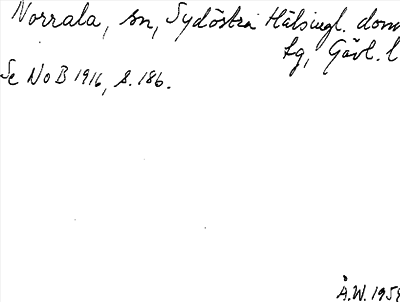 Norrala, sn, Sydöstra Hälsingl. doms
tg, Gävl. l
Se NoB 1916, s. 186.
Å.W. 1959